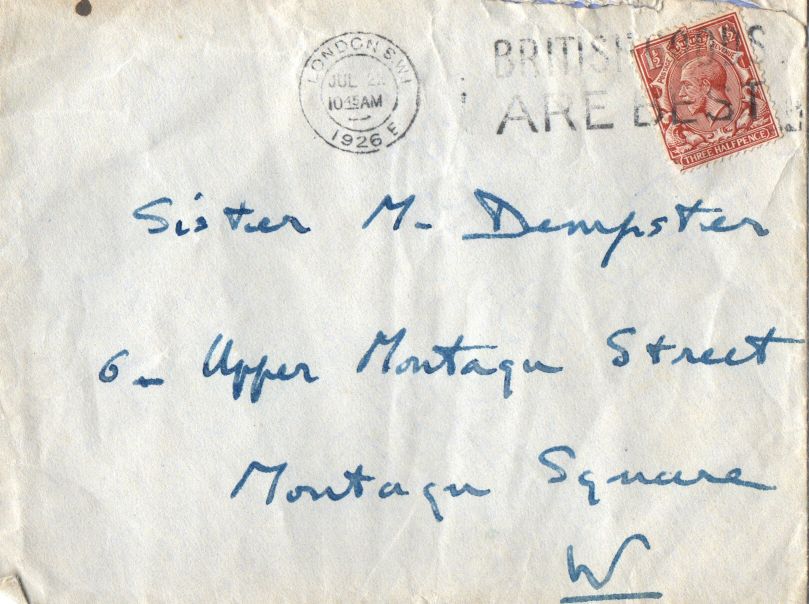 LONDON S.W.1
JUL
10 15 AM
1926 E
BRITISH GOODS
ARE BEST
1½ 1½
THREE HALFPENCE
Sister M- Dempster
6- Upper Montagu Street
Montagu Square
W